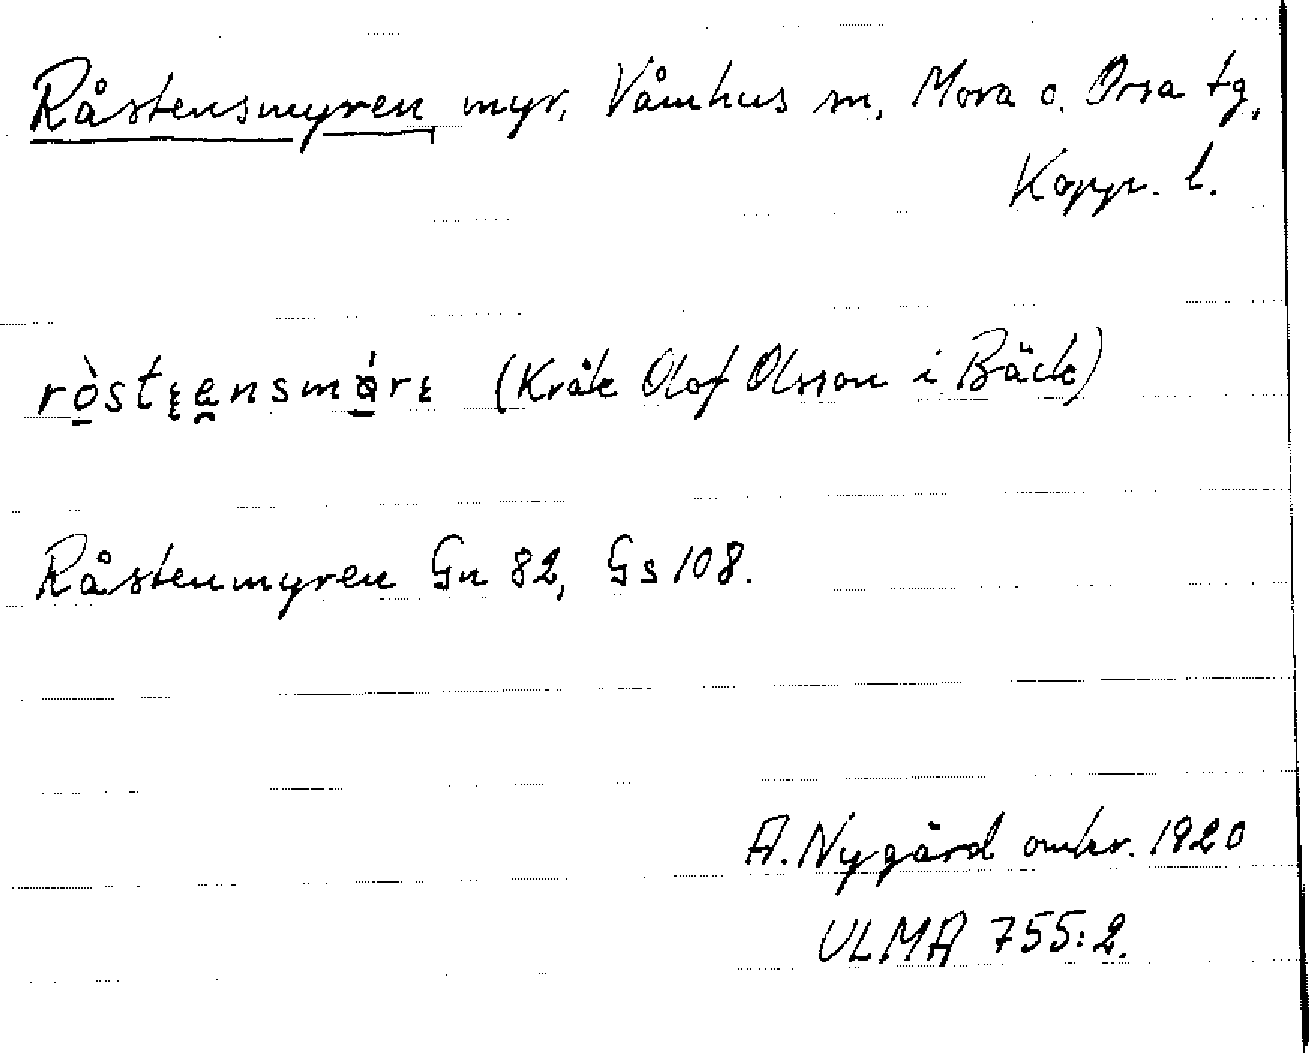 Råstensmyren myr, Våmhus sn, Mora o. Orsa tg,
Kopp. l.
ròstɛensmárɛ (Kråk Olof Olsson i Bäck)
Råstenmyren Gn 82, Gs 108.
A. Nygård omkr. 1920
ULMA 755:2.